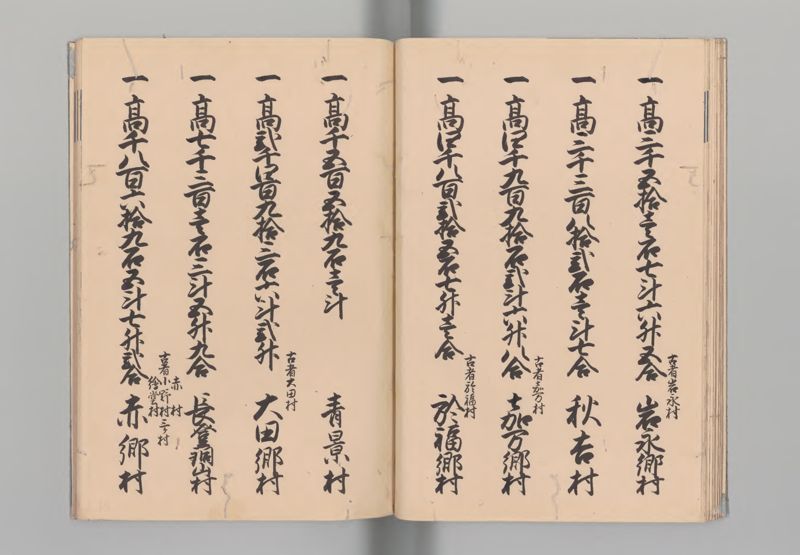 一高二千五拾壱石七斗六升五合 古者岩永村 岩永郷村
一高二千三百八拾弐石壱斗七合 秋吉村
一高四千九百九拾石弐斗六升八合 古者嘉万村 嘉万郷村
一高四千八百弐拾五石七升壱合 古者於福村 於福郷村
一高千五百五拾九石壱斗 青景村
一高弐千四百九拾二石六斗弐升 古者大田村 大田郷村
一高七千三百壱石二斗五升九合 長登銅山村
一高千八百六拾九石五斗七升弐合 古者赤村小野村絵堂村三ヶ村 赤郷村